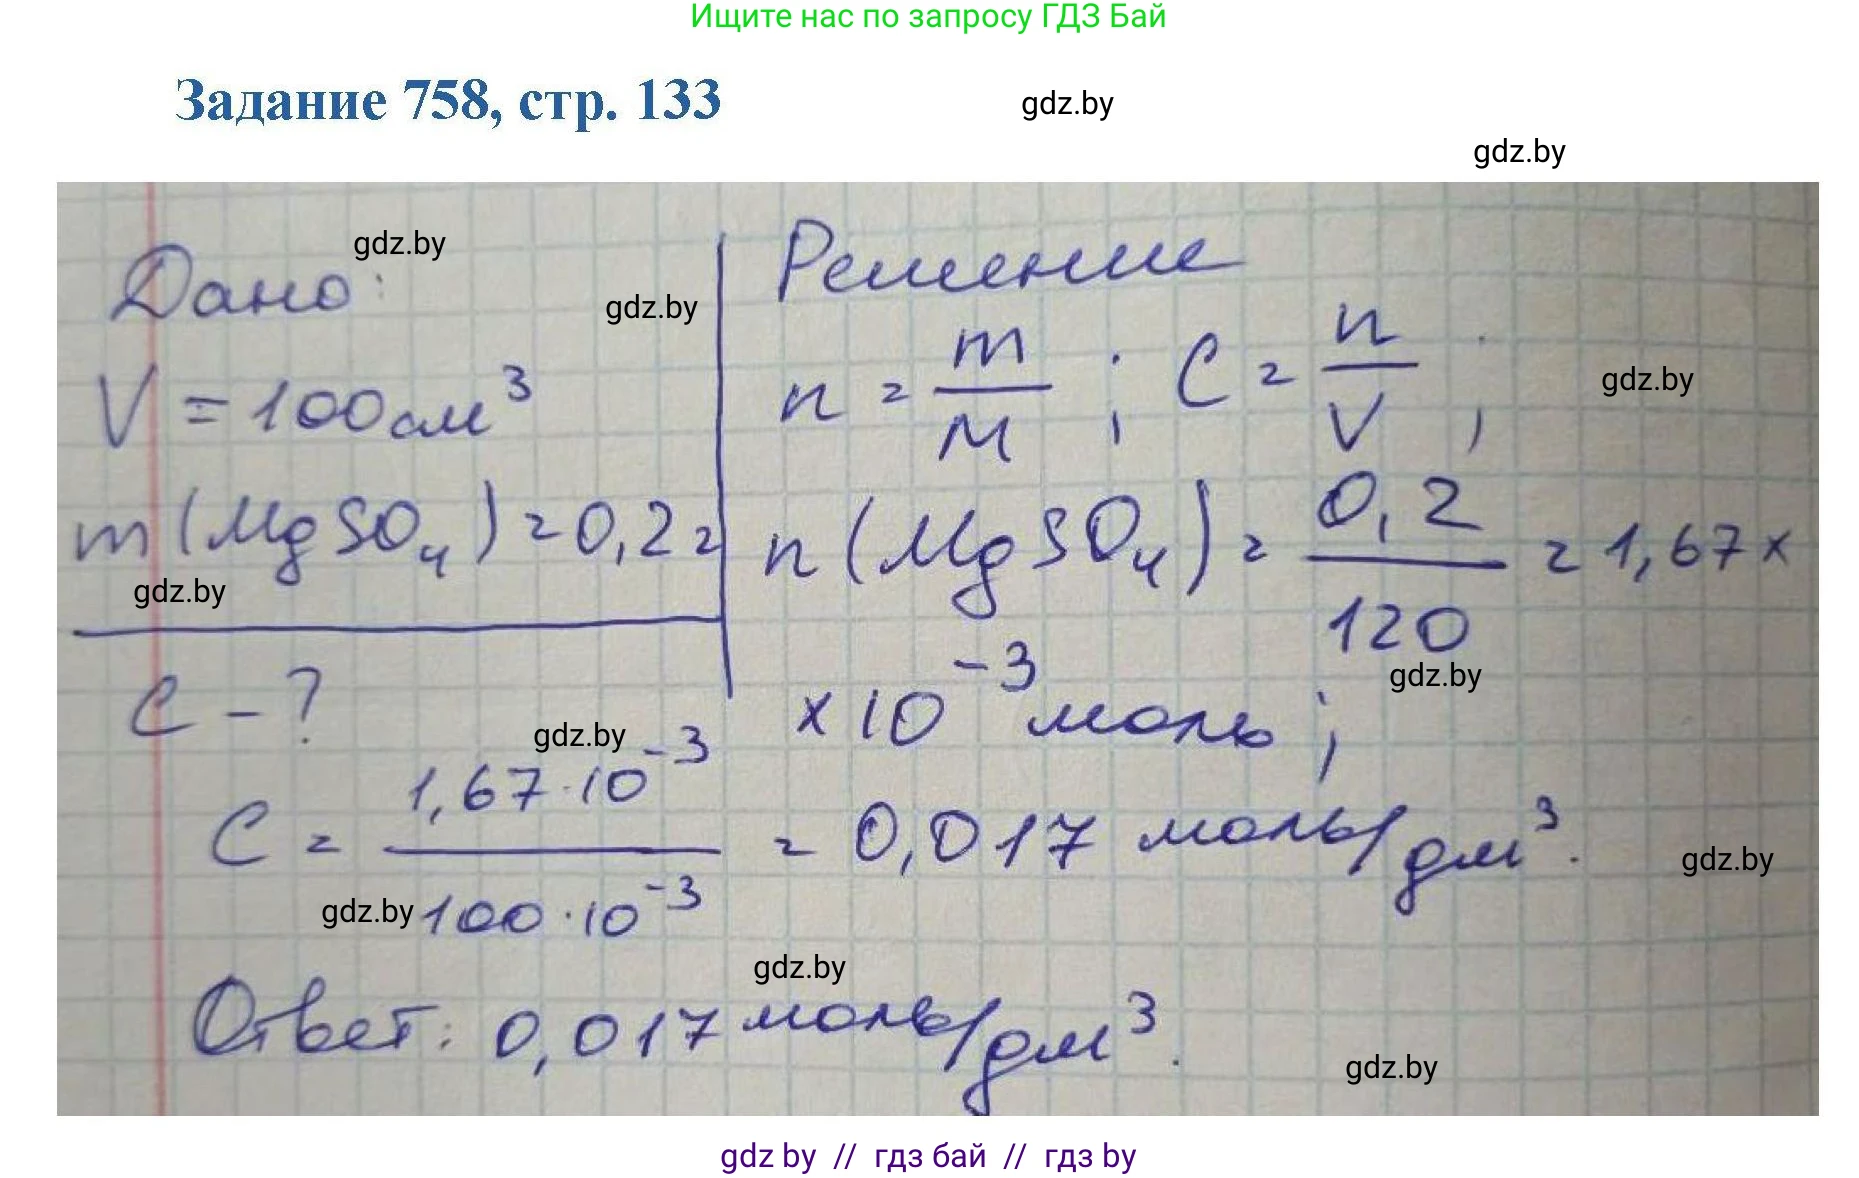 Ищите нас по запросу ГДЗ Бай
Задание 758, стр. 133
gdz.by
gdz.by
Дано:
gdz.by
gdz.by
V = 100 см³
m (MgSO₄) = 0,2 г
gdz.by
C - ?
Решение
n = m/M ; C = n/V ;
gdz.by
n (MgSO₄) = 0,2/120 = 1,67 ×
gdz.by
× 10⁻³ моль ;
gdz.by
C = 1,67 · 10⁻³ / 100 · 10⁻³ = 0,017 моль/дм³.
gdz.by
gdz.by
gdz.by
Ответ: 0,017 моль/дм³.
gdz.by
gdz by // гдз бай // гдз by